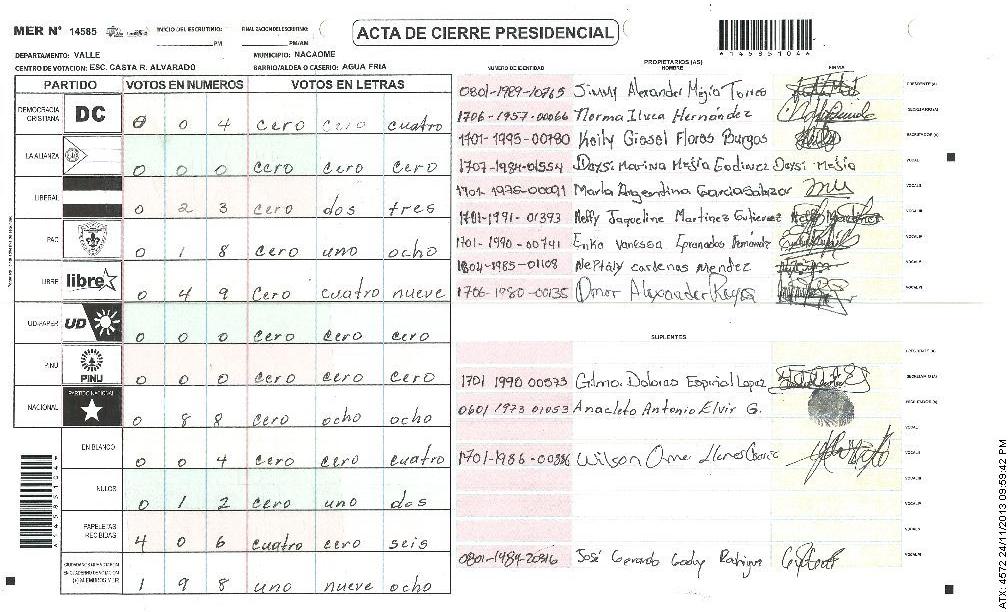 MER Nº 14585
INICIO DEL ESCRUTINIO:
PM
FINALIZACION DEL ESCRUTINIO:
PM/AM
ACTA DE CIERRE PRESIDENCIAL
DEPARTAMENTO: VALLE
MUNICIPIO: NACAOME
CENTRO DE VOTACION: ESC. CASTA R. ALVARADO
BARRIO/ALDEA O CASERIO: AGUA FRIA
PARTIDO VOTOS EN NUMEROS VOTOS EN LETRAS
DEMOCRACIA CRISTIANA DC 0 0 4 cero cero cuatro
LA ALIANZA 0 0 0 cero cero cero
LIBERAL 0 2 3 cero dos tres
PAC 0 1 8 cero uno ocho
LIBRE libre 0 4 9 cero cuatro nueve
UD-FAPER UD 0 0 0 cero cero cero
PINU PINU 0 0 0 cero cero cero
NACIONAL PARTIDO NACIONAL 0 8 8 cero ocho ocho
EN BLANCO 0 0 4 cero cero cuatro
NULOS 0 1 2 cero uno dos
PAPELETAS RECIBIDAS 4 0 6 cuatro cero seis
(+) MIEMBROS MER 1 9 8 uno nueve ocho
PROPIETARIOS (AS)
NUMERO DE IDENTIDAD NOMBRE FIRMA
0801-1989-10765 Jimmy Alexander Mejia Torres
1706-1957-00066 Norma Hernández
1701-1995-00780 Keily Gissel Flores Burgos
1707-1984-01554 Daysi Marina Mejia Godinez Daysi Mejia
1701-1975-00091 Marla Argentina Garcia Salazar
1701-1991-01393 Nelly Jaqueline Martinez Gutierrez
1701-1990-00741 Erika Vanessa Granados Fernández
1804-1985-01108 Neptaly cardenas Mendez
1706-1980-00135 Omar Alexander Reyes
SUPLENTES
1701 1990 00573 Gilma Dolores Espinal Lopez
0601 1973 01053 Anacleto Antonio Elvir G.
1701-1986-00886 Wilson Omar
José Gerardo Godoy
ATX: 4572 24/11/2013 09:59:42 PM